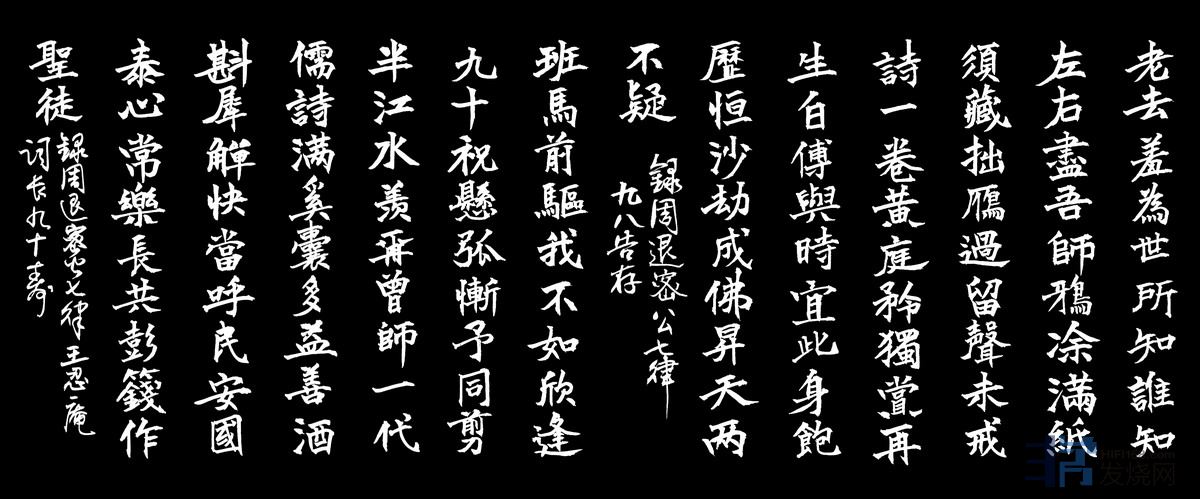 老去羞為世所知誰知
左右盡吾師鴉凃滿紙
須藏拙鴈過留聲未戒
詩一卷黄庭矜獨賞再
生白傅與時宜此身飽
歷恒沙劫成佛昇天两
不疑
録周退密公七律
九八告存
班馬前驅我不如欣逢
九十祝懸弧慚予同剪
半江水羨再曾師一代
儒詩满奚囊多益善酒
斟犀觶快當呼民安國
泰心常樂長共彭籛作
聖徒
録周退密公七律王忍庵
詞长九十壽
发烧网